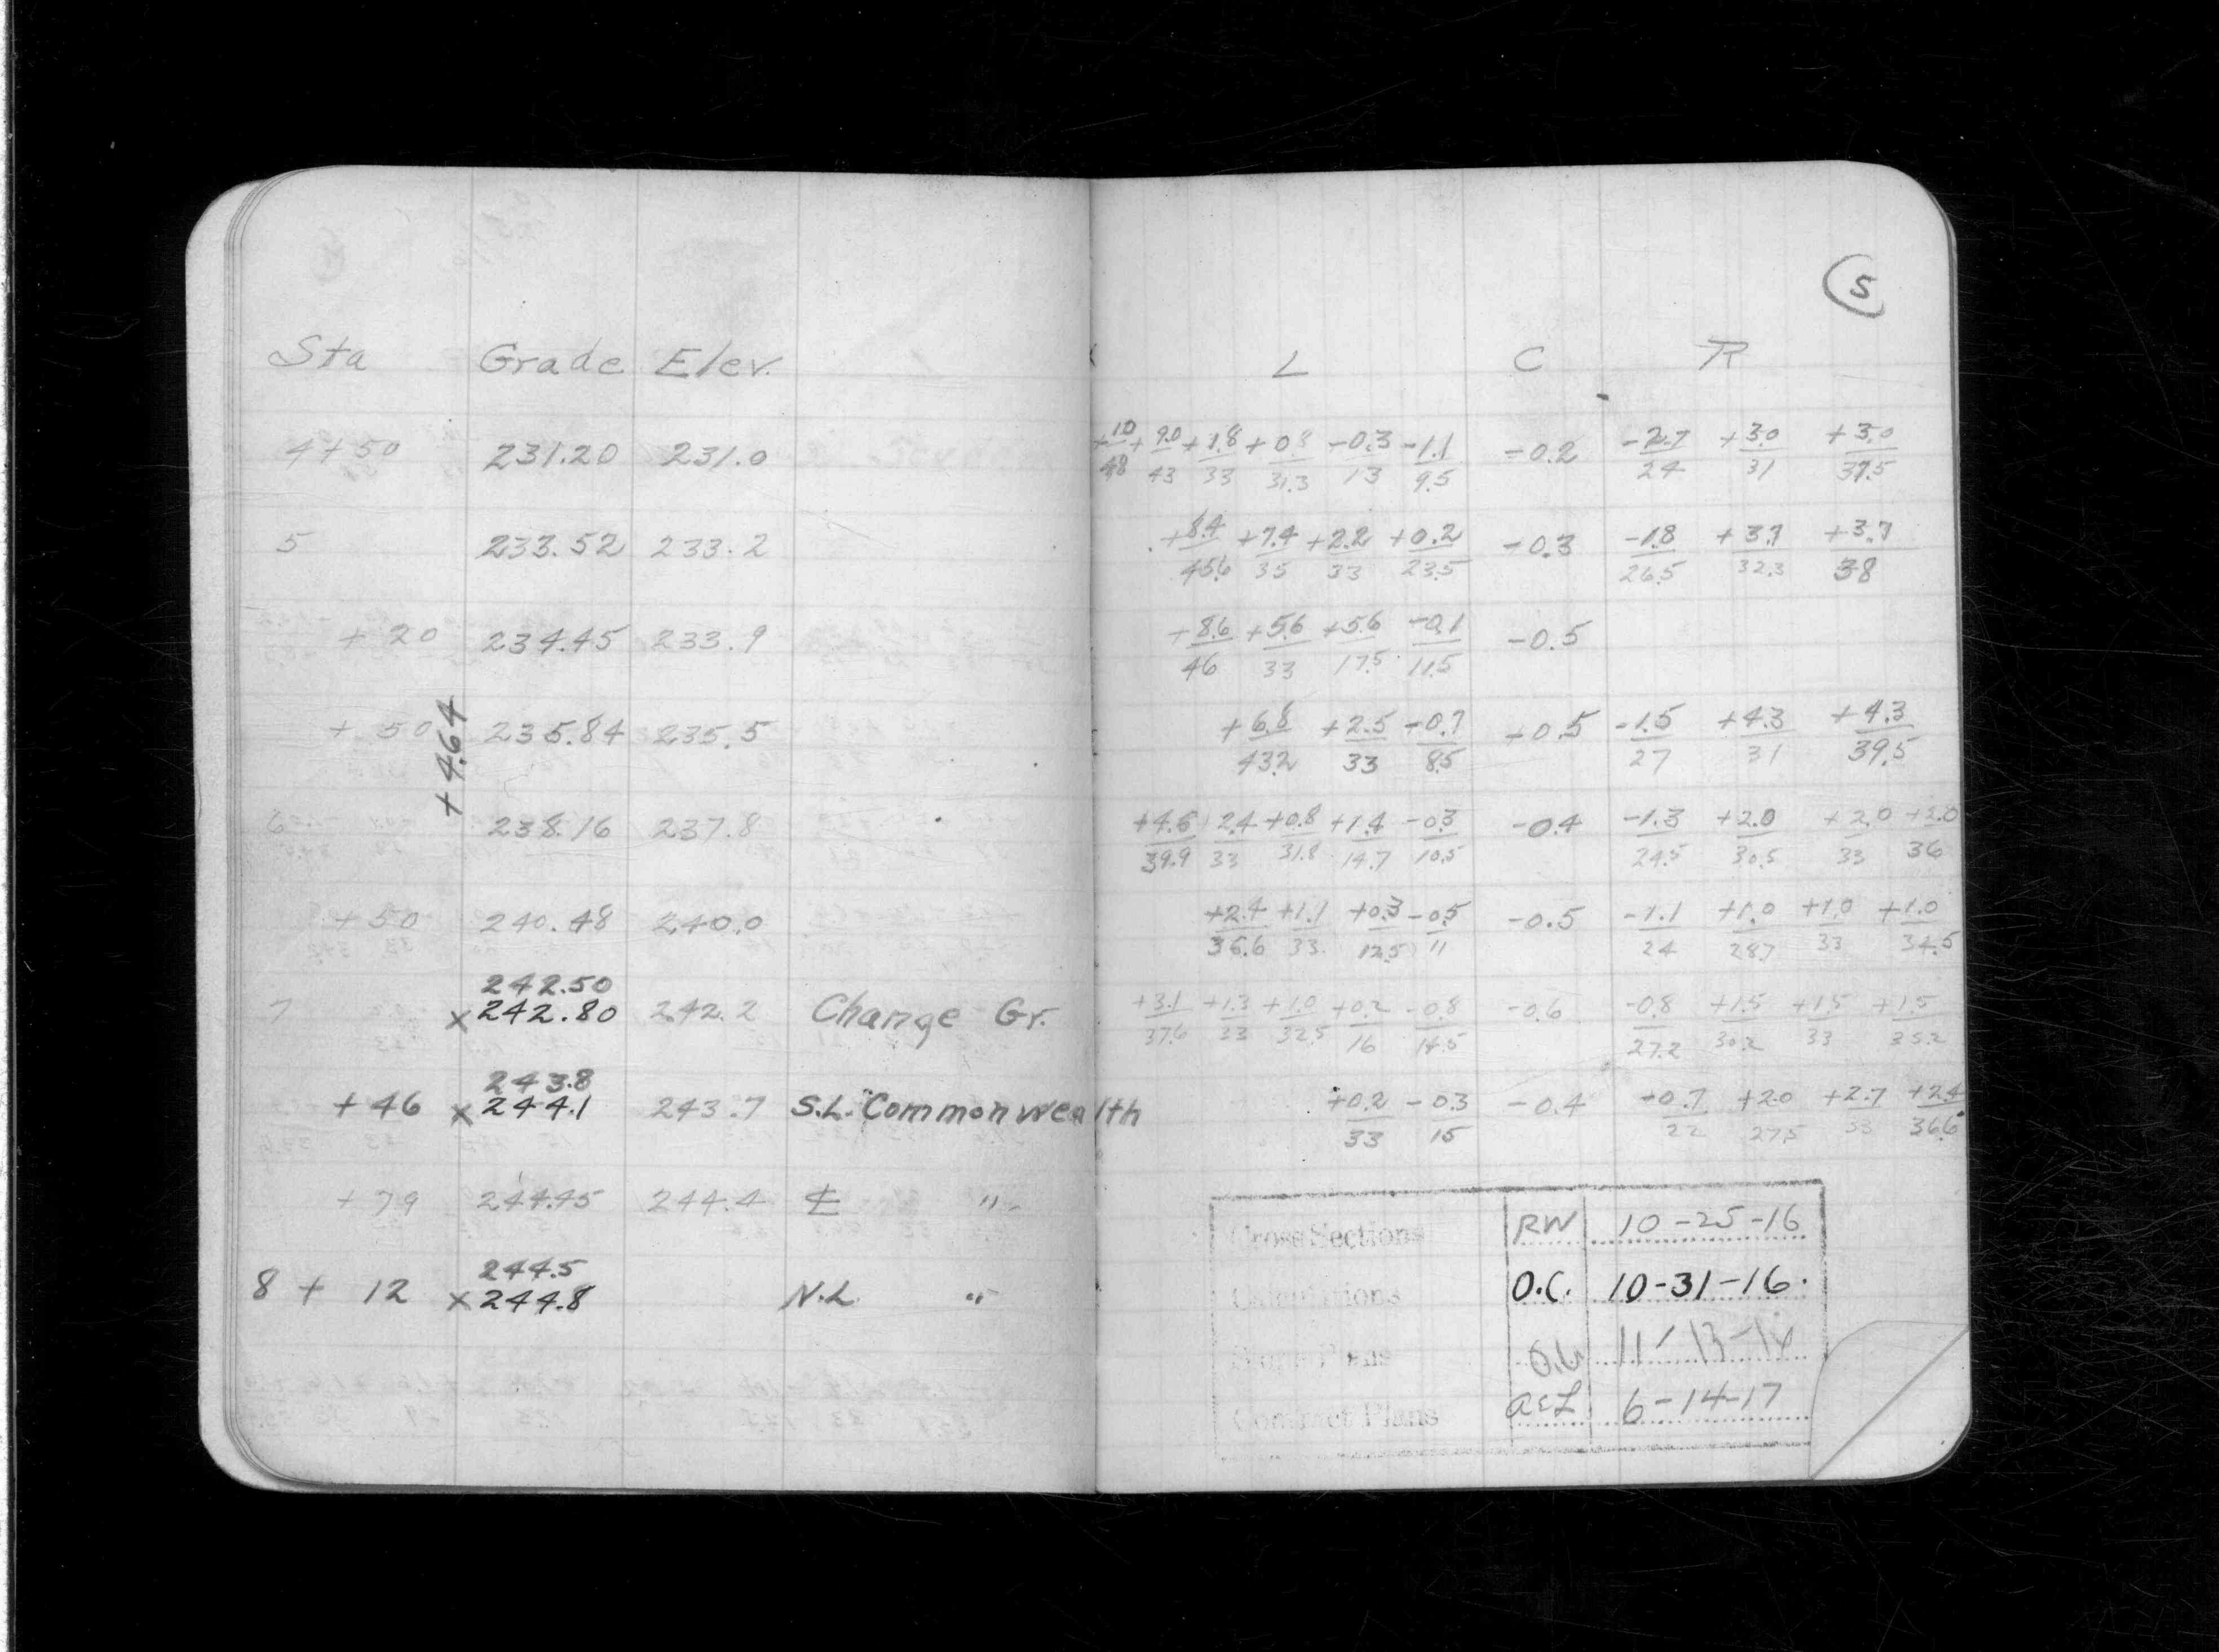 5
Sta Grade Elev. L C R
4+50 231.20 231.0 +10/48 +9.0/43 +1.8/33 +0.8/31.3 -0.3/13 -1.1/9.5 -0.2 -2.7/24 +3.0/31 +3.0/37.5
5 233.52 233.2 +8.4/45.6 +7.4/35 +2.2/33 +0.2/23.5 -0.3 -1.8/26.5 +3.7/32.3 +3.7/38
+20 234.45 233.9 +8.6/46 +5.6/33 +5.6/17.5 -0.1/11.5 -0.5
+50 235.84 235.5 +6.8/43.2 +2.5/33 -0.7/8.5 -0.5 -1.5/27 +4.3/31 +4.3/39.5
+4.64
6 238.16 237.8 +4.6/39.9 2.4/33 +0.8/31.8 +1.4/14.7 -0.3/10.5 -0.4 -1.3/24.5 +2.0/30.5 +2.0/33 +2.0/36
+50 240.48 240.0 +2.4/36.6 +1.1/33 +0.3/12.5 -0.5/11 -0.5 -1.1/24 +1.0/28.7 +1.0/33 +1.0/34.5
242.50
7 x242.80 242.2 Change Gr. +3.1/37.6 +1.3/33 +1.0/32.5 +0.2/16 -0.8/14.5 -0.6 -0.8/27.2 +1.5/30.2 +1.5/33 +1.5/35.2
243.8
+46 x244.1 243.7 S.L. Commonwealth +0.2/33 -0.3/15 -0.4 +0.7/22 +2.0/27.5 +2.7/33 +2.4/36.6
+79 244.45 244.4 ℄ "
Cross Sections RW 10-25-16
244.5
8+12 x244.8 N.L. "
Calculations O.C. 10-31-16.
11-13-16
Contract Plans 6-14-17